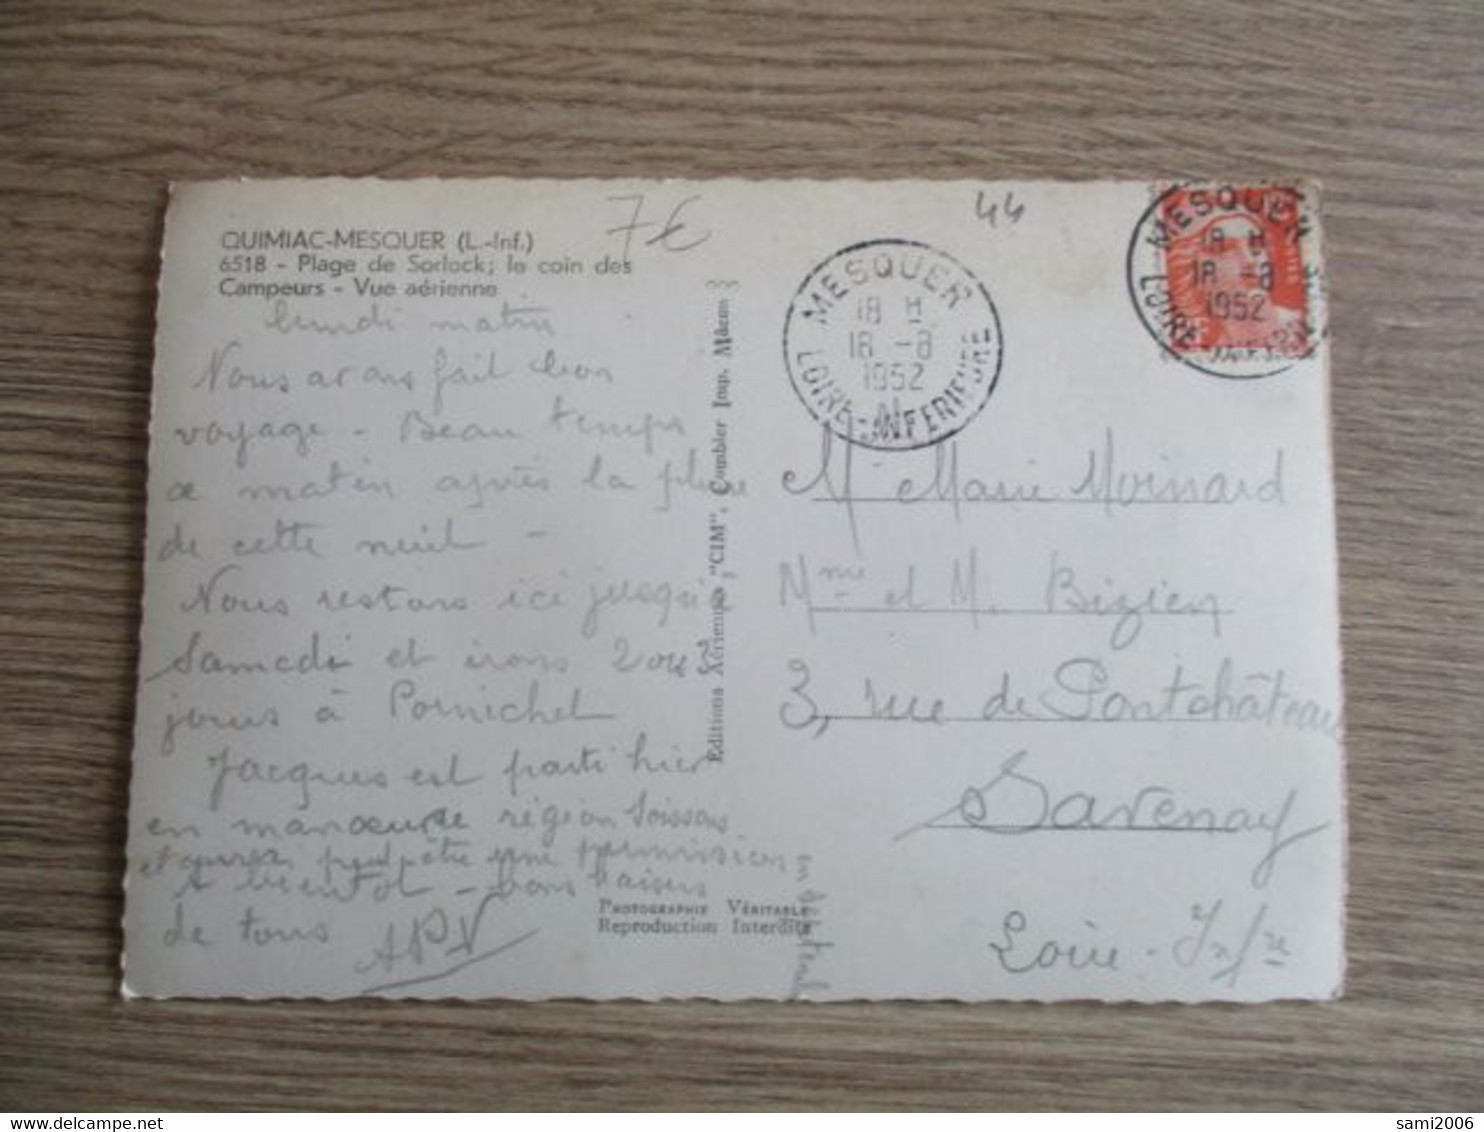 QUIMIAC-MESQUER (L.-Inf.)
6518 - Plage de Sorlock; le coin des
Campeurs - Vue aérienne
7€
44
lundi matin
Nous avons fait bon
voyage - Beau temps
ce matin après la pluie
de cette nuit -
Nous restons ici jusqu'à
Samedi et irons 2 ou 3
jours à Pornichet
Jacques est parti hier
en manœuvre région Soissons
et aurez peut être une permission
A bientôt - bons baisers
de tous APV
Editions Aériennes "CIM", Combier Imp. Mâcon
PHOTOGRAPHIE VÉRITABLE
Reproduction Interdite
MESQUER
18 H
18 -8
1952
LOIRE-INFERIEURE
MESQUER
18 H
18 -8
1952
LOIRE
M. Marie Moinard
Mme et M. Bizien
3, rue de Pontchâteau
Savenay
Loire-Infre
sami2006